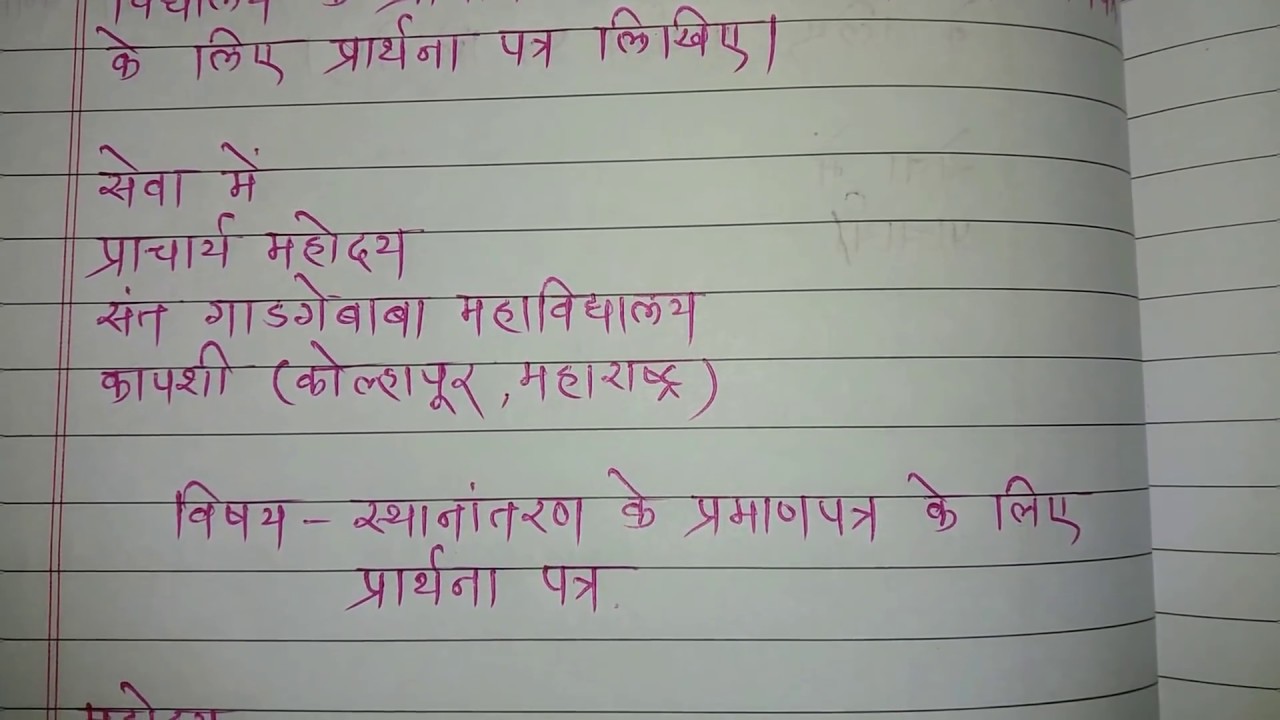 विद्यालय के
के लिए प्रार्थना पत्र लिखिए।
सेवा में
प्राचार्य महोदय
संत गाडगेबाबा महाविद्यालय
कापशी (कोल्हापूर, महाराष्ट्र)
विषय – स्थानांतरण के प्रमाणपत्र के लिए
प्रार्थना पत्र.
महोदय